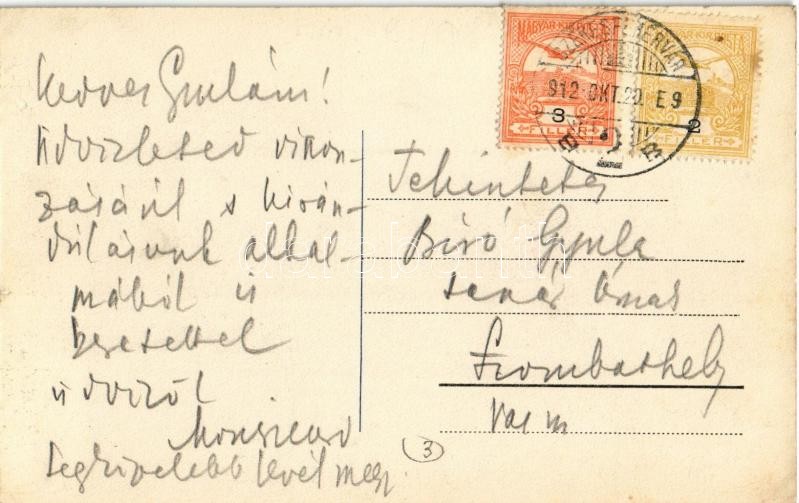 Kedves Gyulám!
Üdvözleted viszon-
zásául s kirán-
dulásunk alkal-
mából is
szeretettel
üdvözöl
Legközelebb levél megy.
MAGYAR KIR. POSTA
3
FILLÉR
MAGYAR KIR. POSTA
2
FILLÉR
SZÉKESFEHÉRVÁR
912 OKT. 20. E 9
Tekintetes
Bíró Gyula
tanár Úrnak
Szombathely
Vas m
3